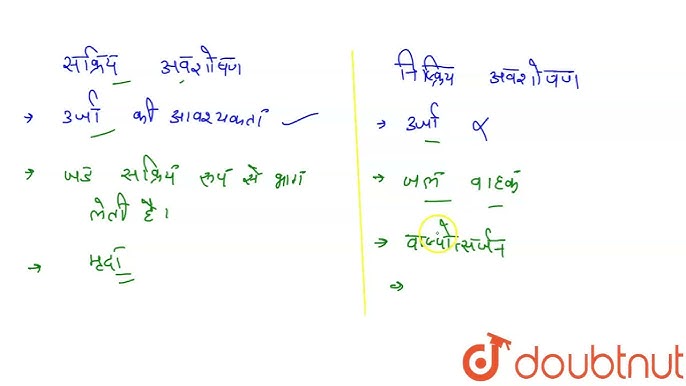 सक्रिय अवशोषण
→ उर्जा की आवश्यकता ✓
→ जडे सक्रिय रूप से भाग
लेती है।
→ मृदा
निष्क्रिय अवशोषण
→ उर्जा ×
→ जल वाहक
→ वाष्पोत्सर्जन
→
doubtnut